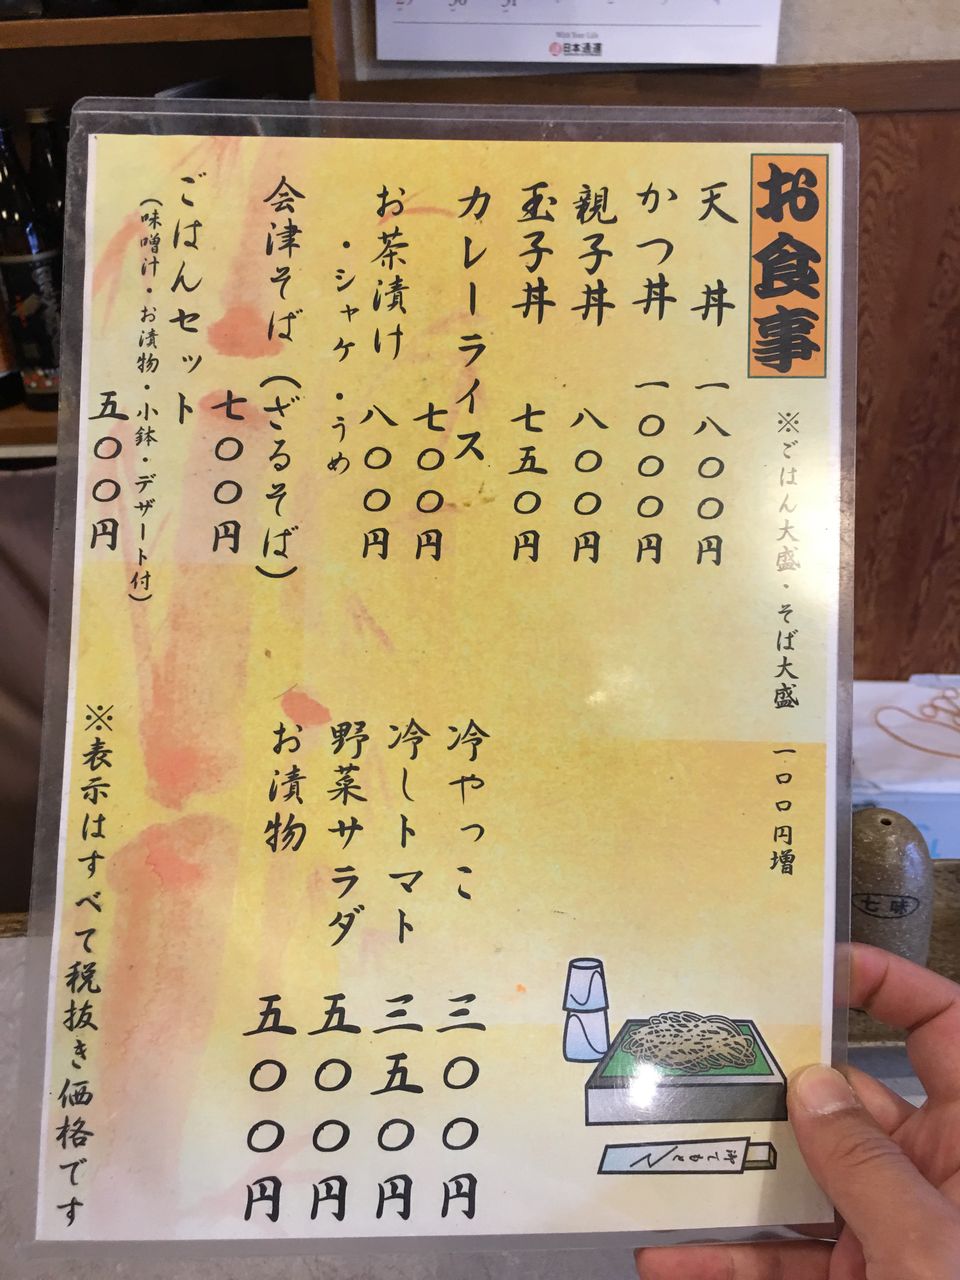 With Your Life
日本通運
お食事
※ごはん大盛・そば大盛 一〇〇円増
天丼 一八〇〇円
かつ丼 一〇〇〇円
親子丼 八〇〇円
玉子丼 七五〇円
カレーライス 七〇〇円
お茶漬け 八〇〇円
・シャケ・うめ
会津そば(ざるそば) 七〇〇円
ごはんセット 五〇〇円
(味噌汁・お漬物・小鉢・デザート付)
冷やっこ 三〇〇円
冷しトマト 三五〇円
野菜サラダ 五〇〇円
お漬物 五〇〇円
※表示はすべて税抜き価格です
七味
おてもと